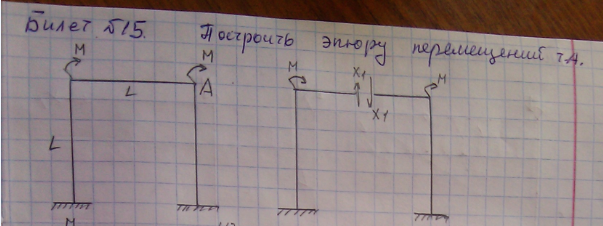 Билет №15. Построить эпюру перемещений т.А.
M M
L A
L
M X1 M
X1